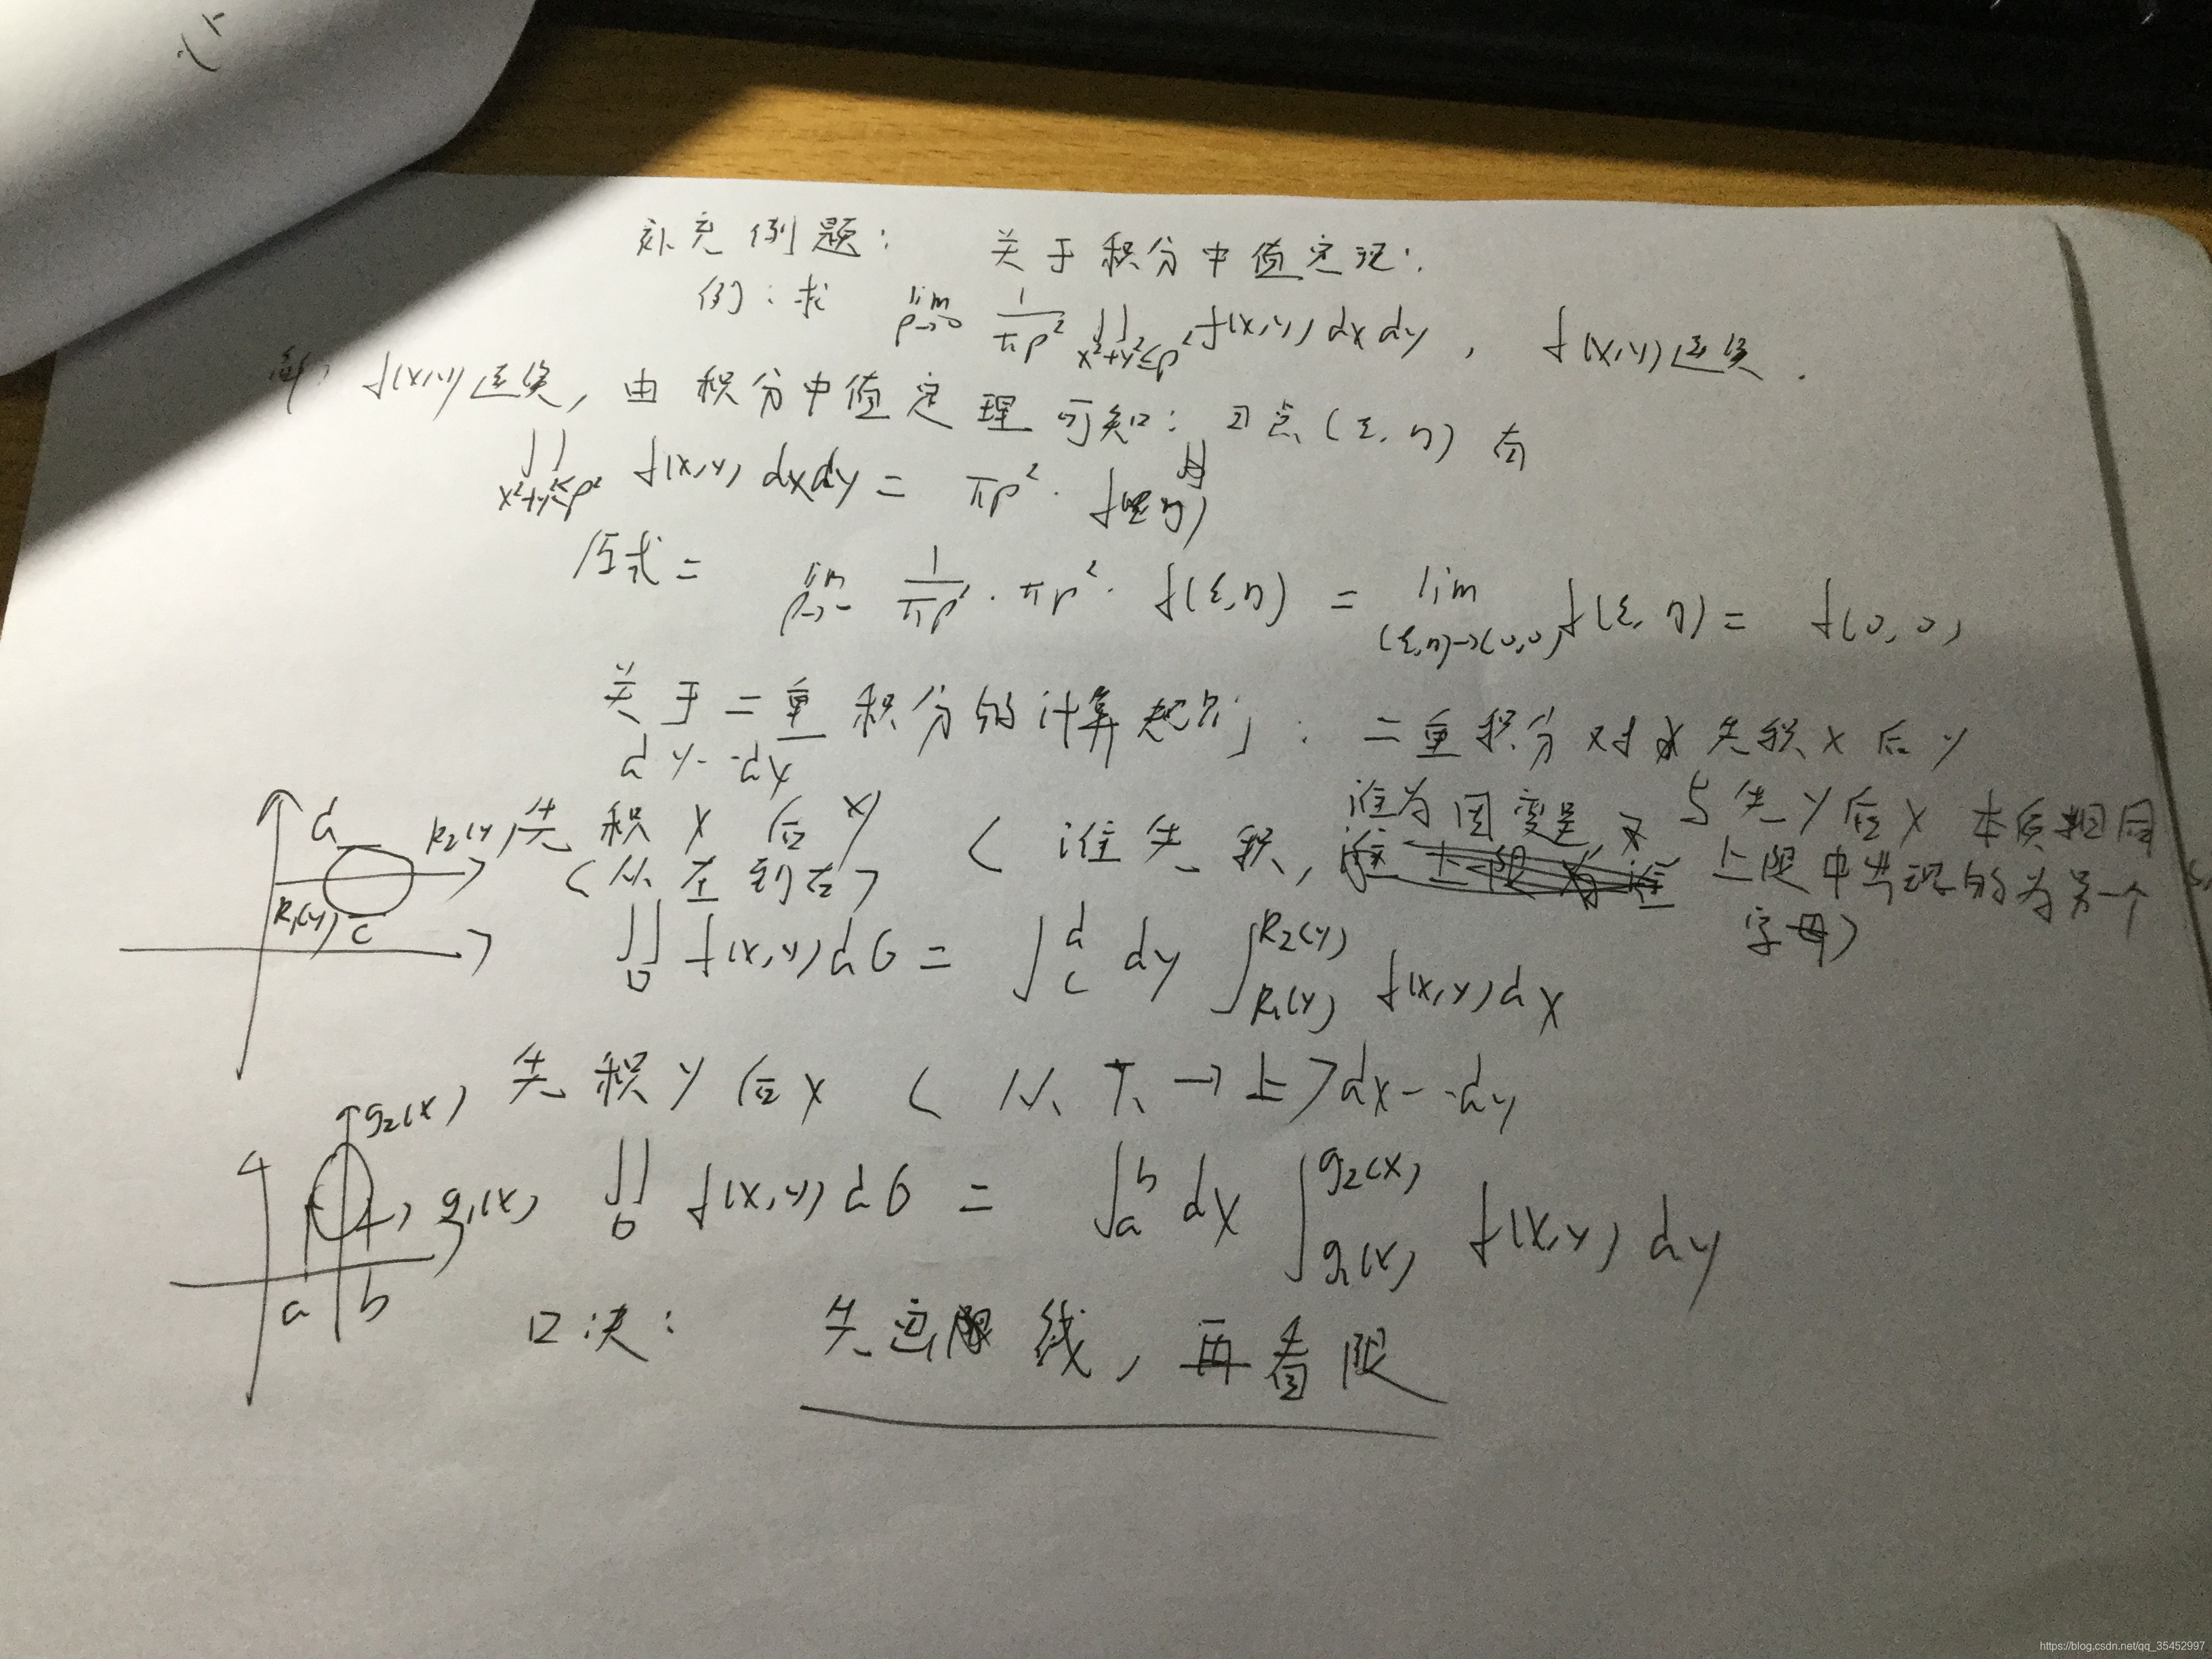 补充例题： 关于积分中值定理：
例：求 lim ρ→0 1/πρ² ∬ x²+y²≤ρ² f(x,y) dxdy ， f(x,y)连续．
解： f(x,y)连续，由积分中值定理可知：∃点(ξ,η) 有
∬ x²+y²≤ρ² f(x,y) dxdy = πρ² · f(ξ,η)
原式 = lim ρ→0 1/πρ² · πρ² · f(ξ,η) = lim (ξ,η)→(0,0) f(ξ,η) = f(0,0)
关于二重积分的计算规则： 二重积分对 先积x后y
与先y后x本质相同
dy--dx
先积x后y （谁先积，谁为因变量，
上限中出现的为另一个
字母）
（从左到右）
d
R₂(y)
R₁(y)
c
∬ D f(x,y)dσ = ∫ c d dy ∫ R₁(y) R₂(y) f(x,y)dx
先积y后x （从下→上）dx--dy
g₂(x)
g₁(x)
a b
∬ D f(x,y)dσ = ∫ a b dx ∫ g₁(x) g₂(x) f(x,y) dy
口决： 先定 线，再看限
https://blog.csdn.net/qq_35452997